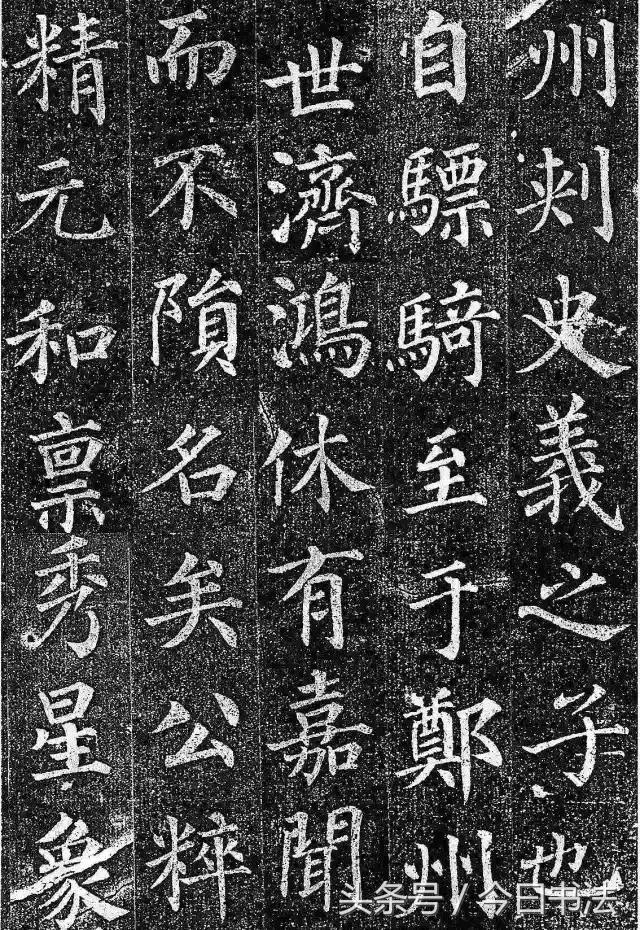 州刺史義之子也
自驃騎至于鄭州
世濟鴻休有嘉聞
而不隕名矣公粹
精元和禀秀星象
头条号 / 今日书法